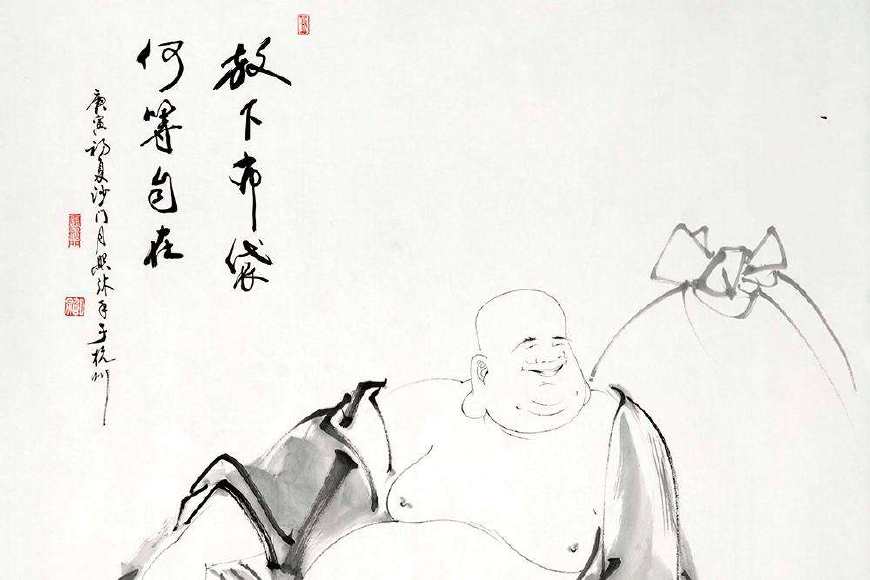 放下布袋
何等自在
庚寅初夏沙门月照沐手于杭州